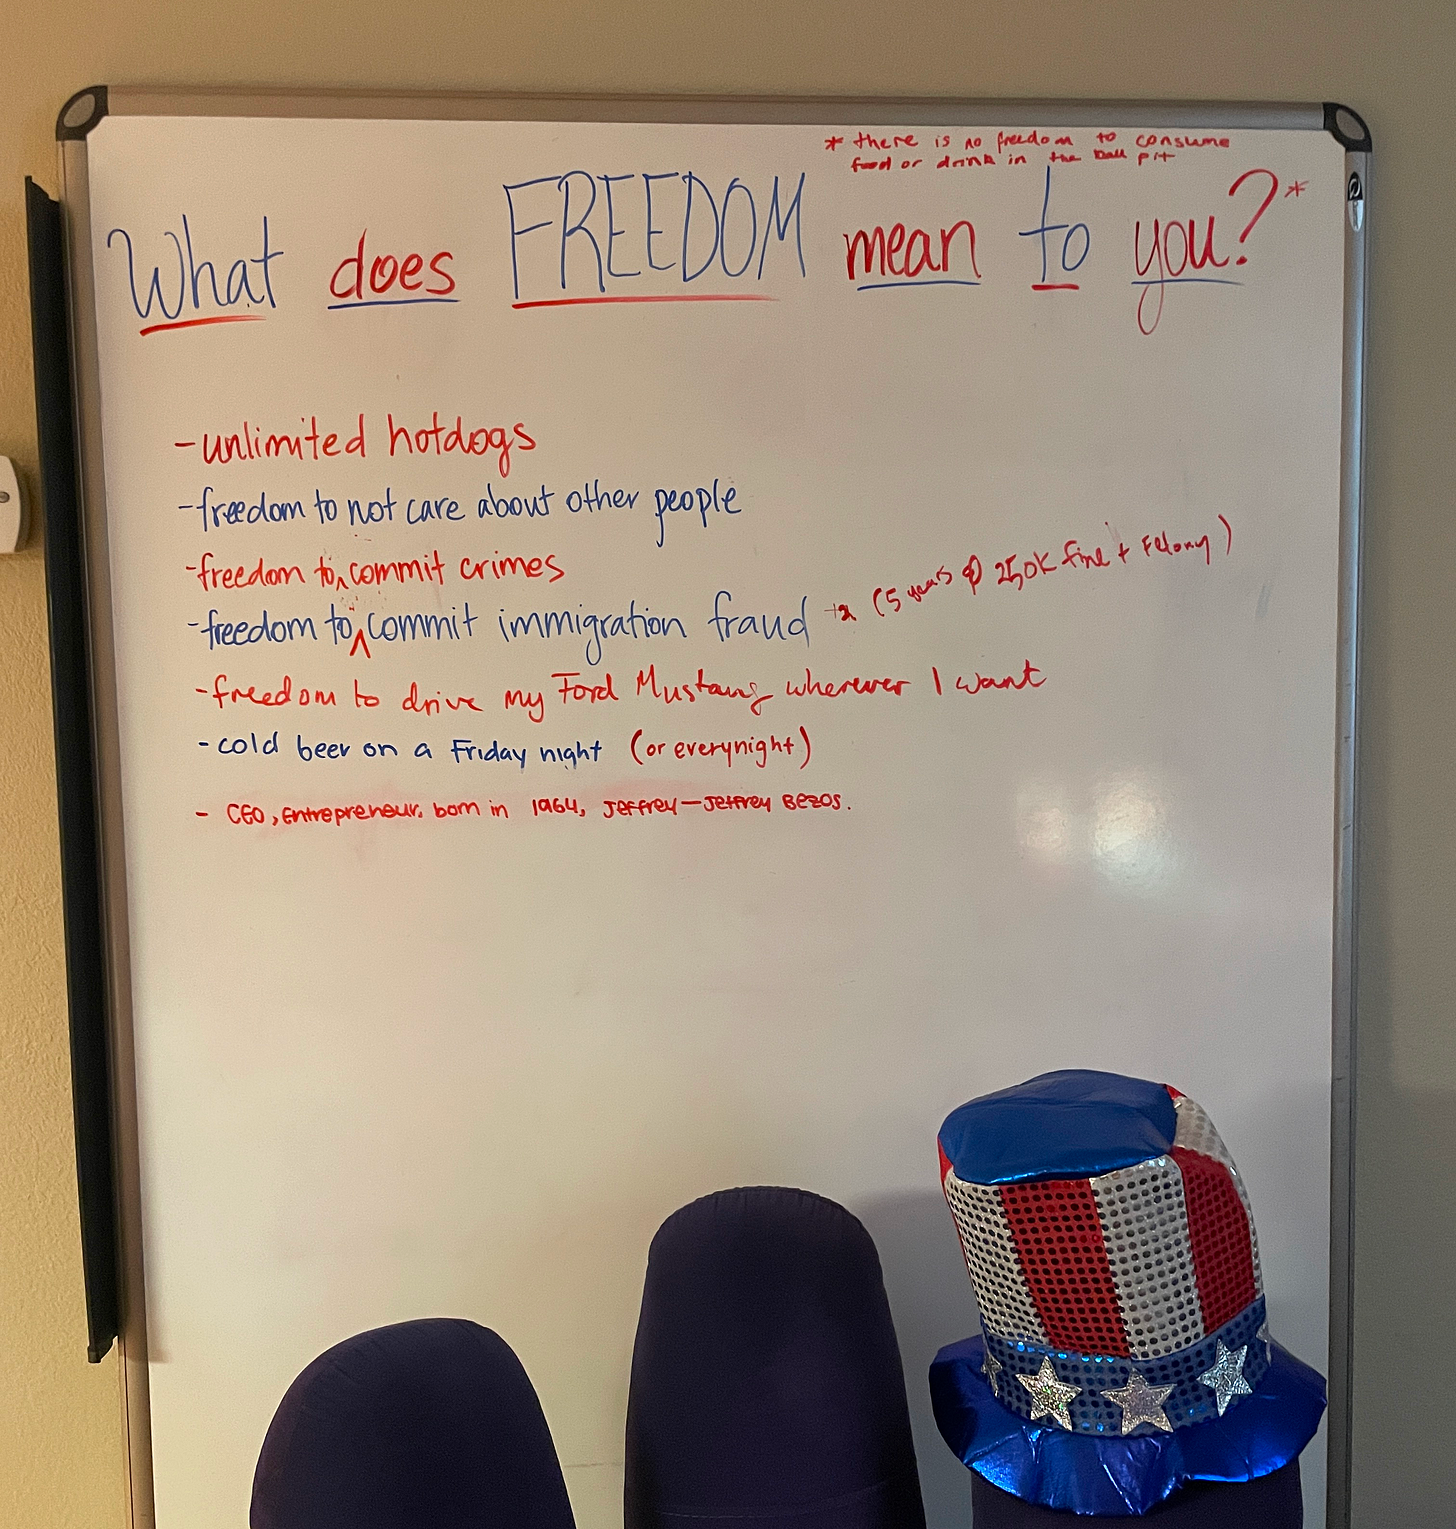 * there is no freedom to consume
food or drink in the ball pit
What does FREEDOM mean to you?*
- unlimited hotdogs
- freedom to not care about other people
- freedom to ^ commit crimes
- freedom to ^ commit immigration fraud (5 years 250K fine + Felony)
- freedom to drive my Ford Mustang wherever I want
- cold beer on a Friday night (or everynight)
- CEO, Entrepreneur. born in 1964, Jeffrey - Jeffrey Bezos.